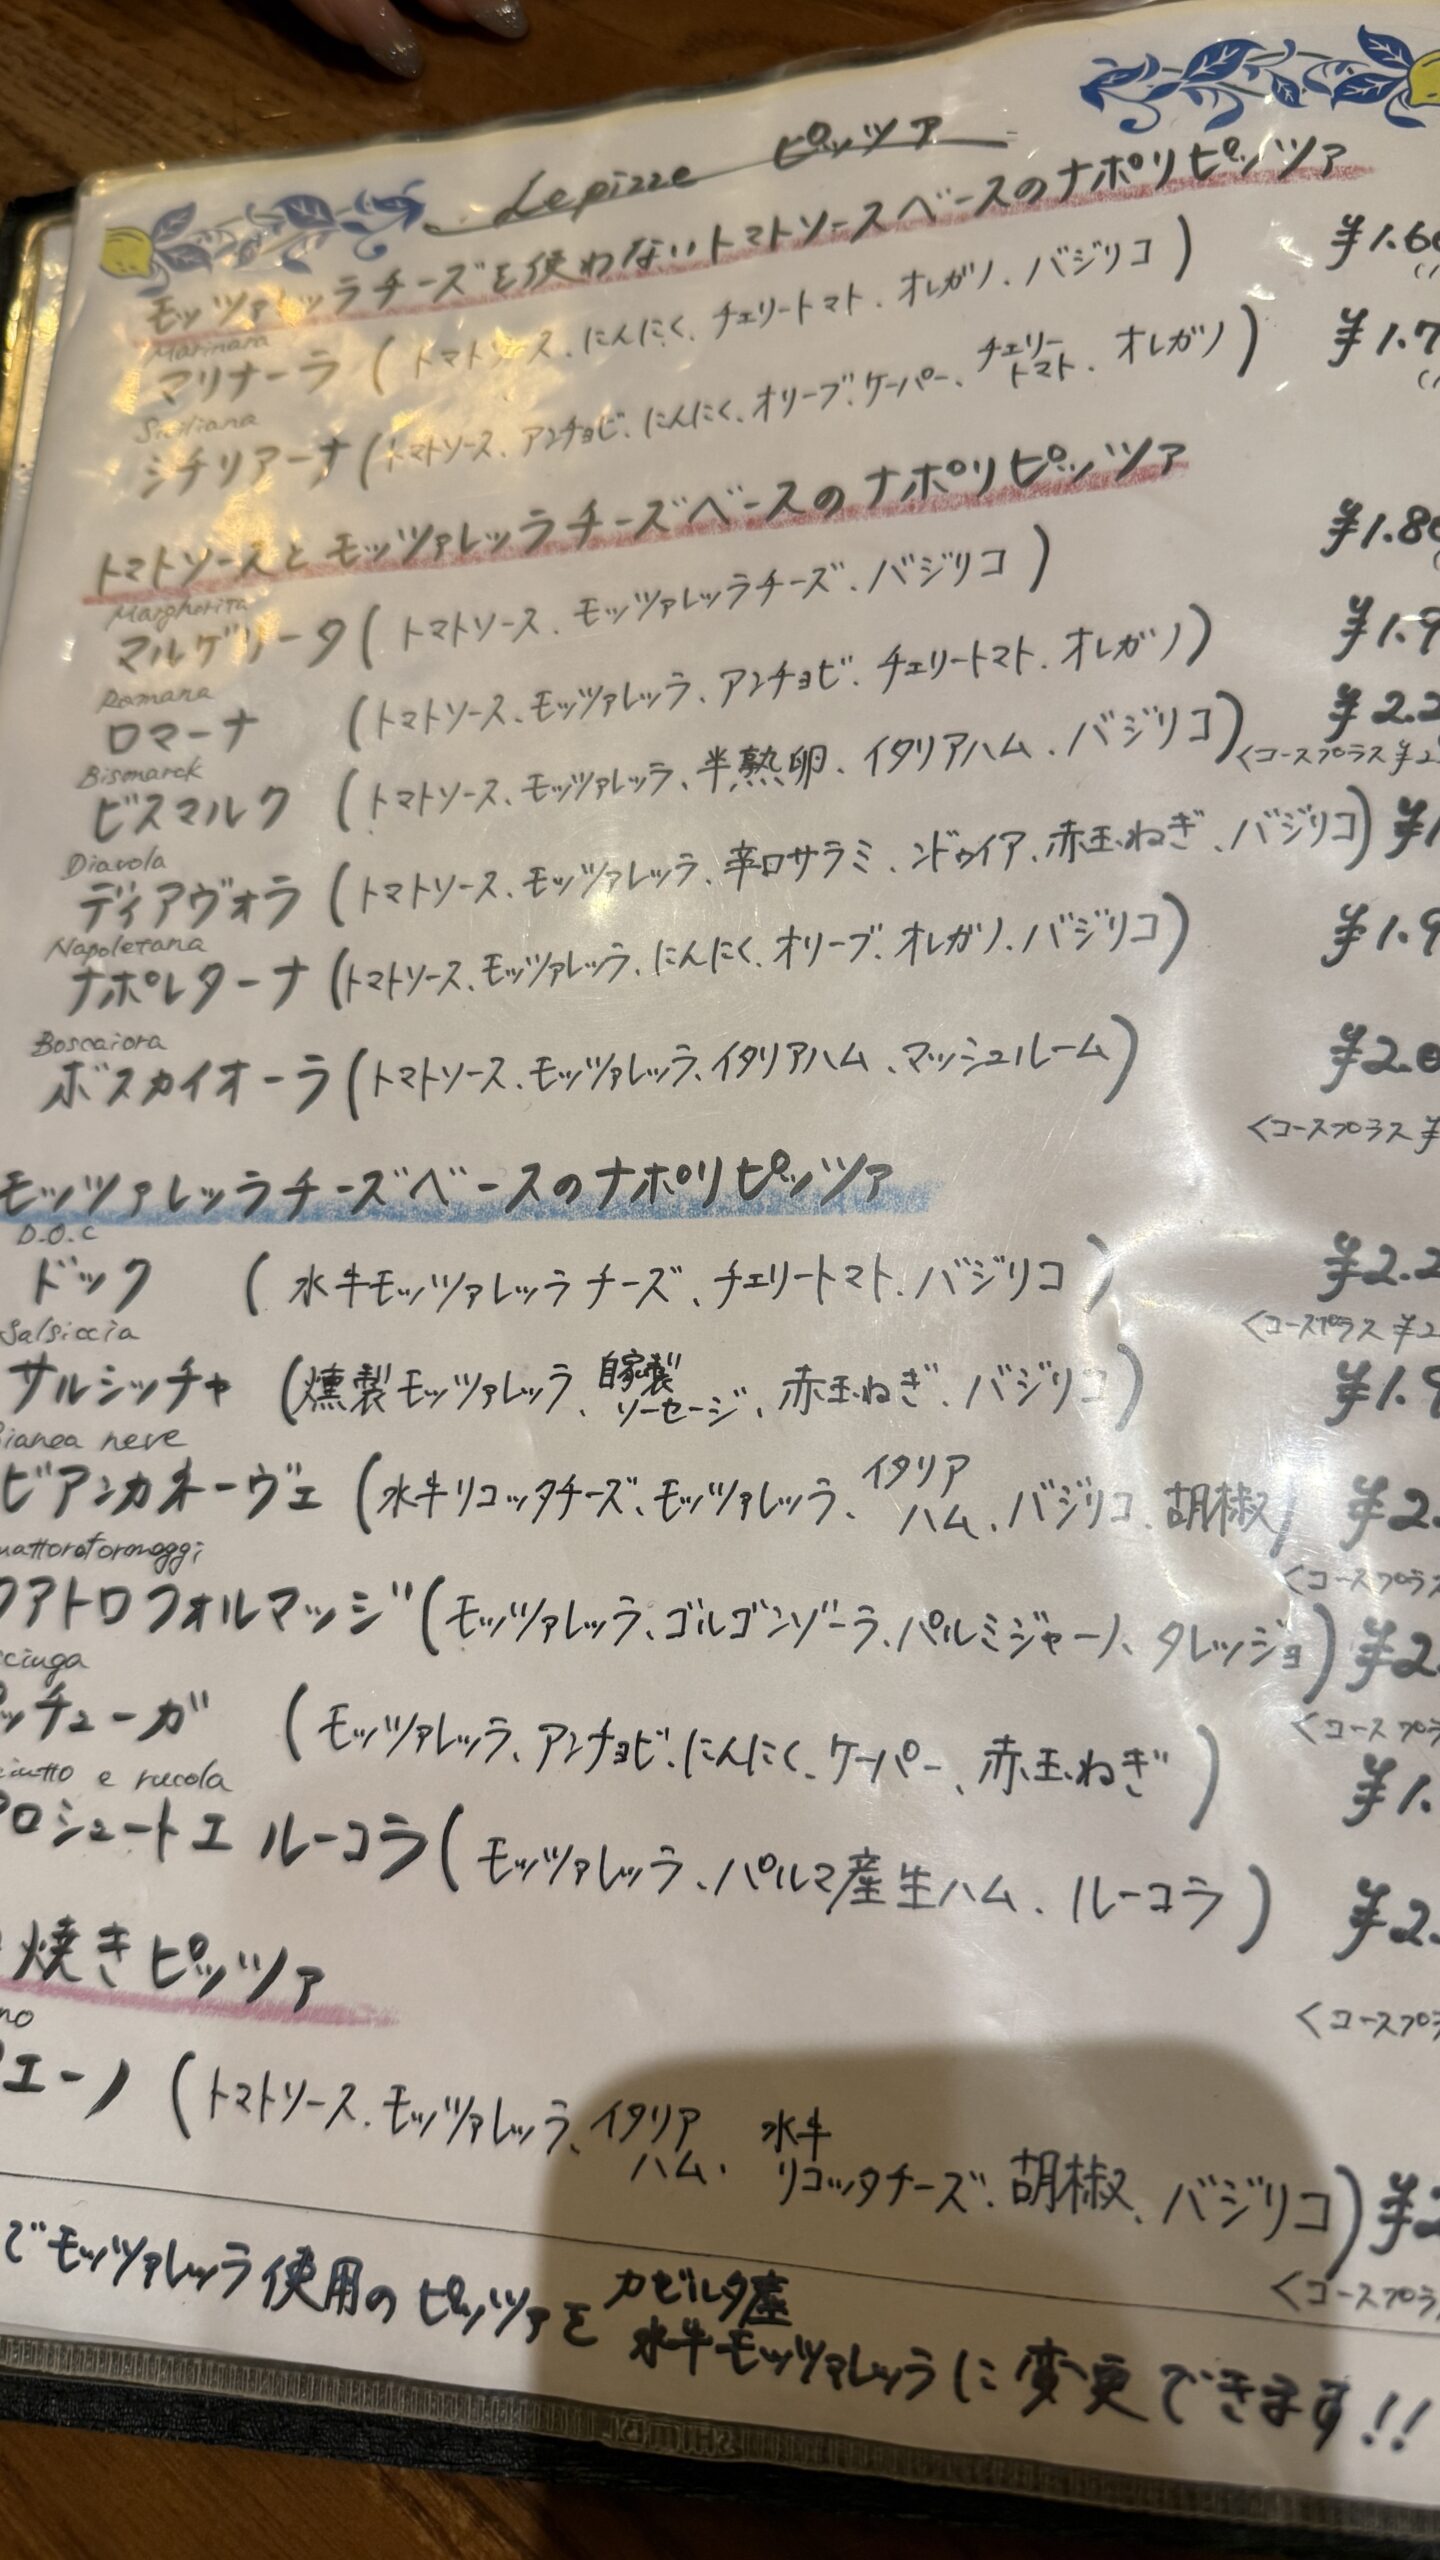 Le pizze ピッツァ
モッツァレッラチーズを使わないトマトソースベースのナポリピッツァ
Marinara
マリナーラ ( トマトソース、にんにく、チェリートマト、オレガノ、バジリコ )
Siciliana
シチリアーナ (トマトソース、アンチョビ、にんにく、オリーブ、ケーパー、チェリートマト、オレガノ)
トマトソースとモッツァレッラチーズベースのナポリピッツァ
Margherita
マルゲリータ ( トマトソース、モッツァレッラチーズ、バジリコ )
Romana
ロマーナ (トマトソース、モッツァレッラ、アンチョビ、チェリートマト、オレガノ)
Bismarck
ビスマルク ( トマトソース、モッツァレッラ、半熟卵、イタリアハム、バジリコ) ¥2.2
<コースプラス ¥2
Diavola
ディアヴォラ (トマトソース、モッツァレッラ、辛口サラミ、ンドゥイア、赤玉ねぎ、バジリコ)
Napoletana
ナポレターナ (トマトソース、モッツァレッラ、にんにく、オリーブ、オレガノ、バジリコ) ¥1.9
Boscaiora
ボスカイオーラ (トマトソース、モッツァレッラ、イタリアハム、マッシュルーム) ¥2.0
<コースプラス ¥
モッツァレッラチーズベースのナポリピッツァ
D.O.C
ドック ( 水牛モッツァレッラチーズ、チェリートマト、バジリコ ) ¥2.2
<コースプラス ¥2
Salsiccia
サルシッチャ (燻製モッツァレッラ、自家製ソーセージ、赤玉ねぎ、バジリコ) ¥1.9
ianca neve
ビアンカネーヴェ (水牛リコッタチーズ、モッツァレッラ、イタリアハム、バジリコ、胡椒) ¥2.
<コースプラス
uattoroformaggi
クアトロフォルマッジ (モッツァレッラ、ゴルゴンゾーラ、パルミジャーノ、タレッジョ) ¥2.
<コースプラ
ciuga
ッチューガ (モッツァレッラ、アンチョビ、にんにく、ケーパー、赤玉ねぎ) ¥1.
ciutto e rucola
プロシュートエ ルーコラ (モッツァレッラ、パルマ産生ハム、ルーコラ) ¥2.
<コースプラ
焼きピッツァ
no
エーノ (トマトソース、モッツァレッラ、イタリアハム、水牛リコッタチーズ、胡椒、バジリコ) ¥2
<コースプラ
でモッツァレッラ使用のピッツァをカゼルタ産水牛モッツァレッラに変更できます!!